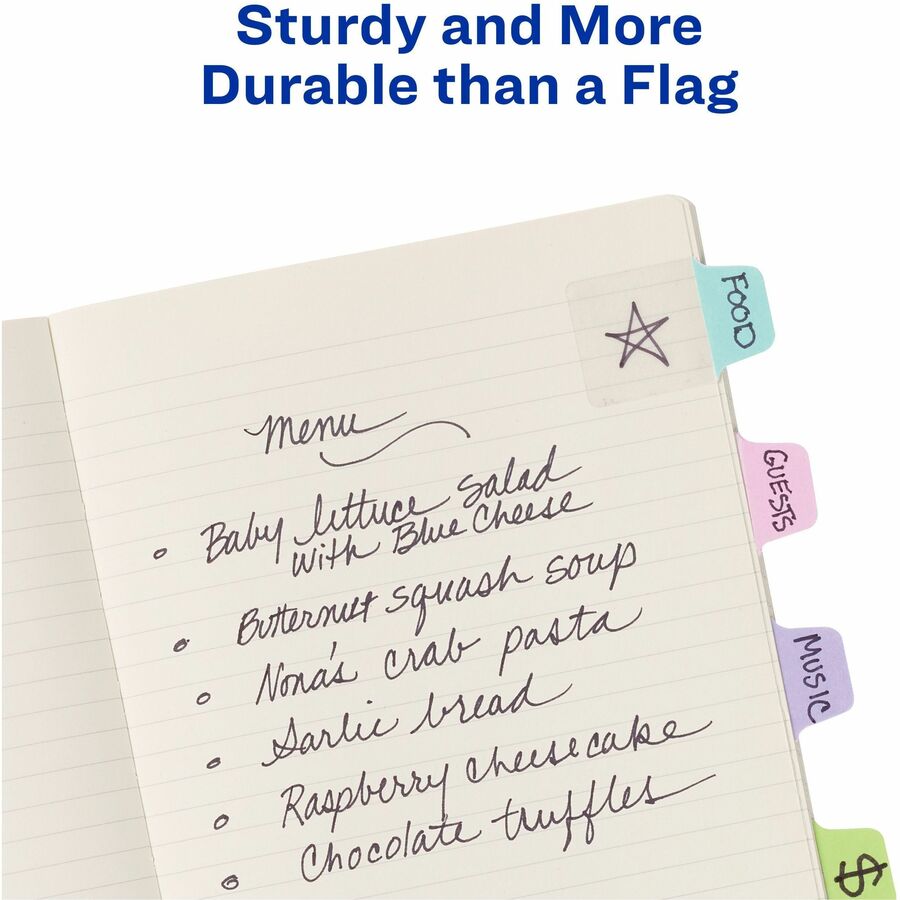 Sturdy and More
Durable than a Flag
FOOD
Menu
Baby lettuce salad
with Blue Cheese
GUESTS
Butternut squash soup
Nona's crab pasta
MUSIC
Garlic bread
Raspberry cheesecake
Chocolate truffles
$